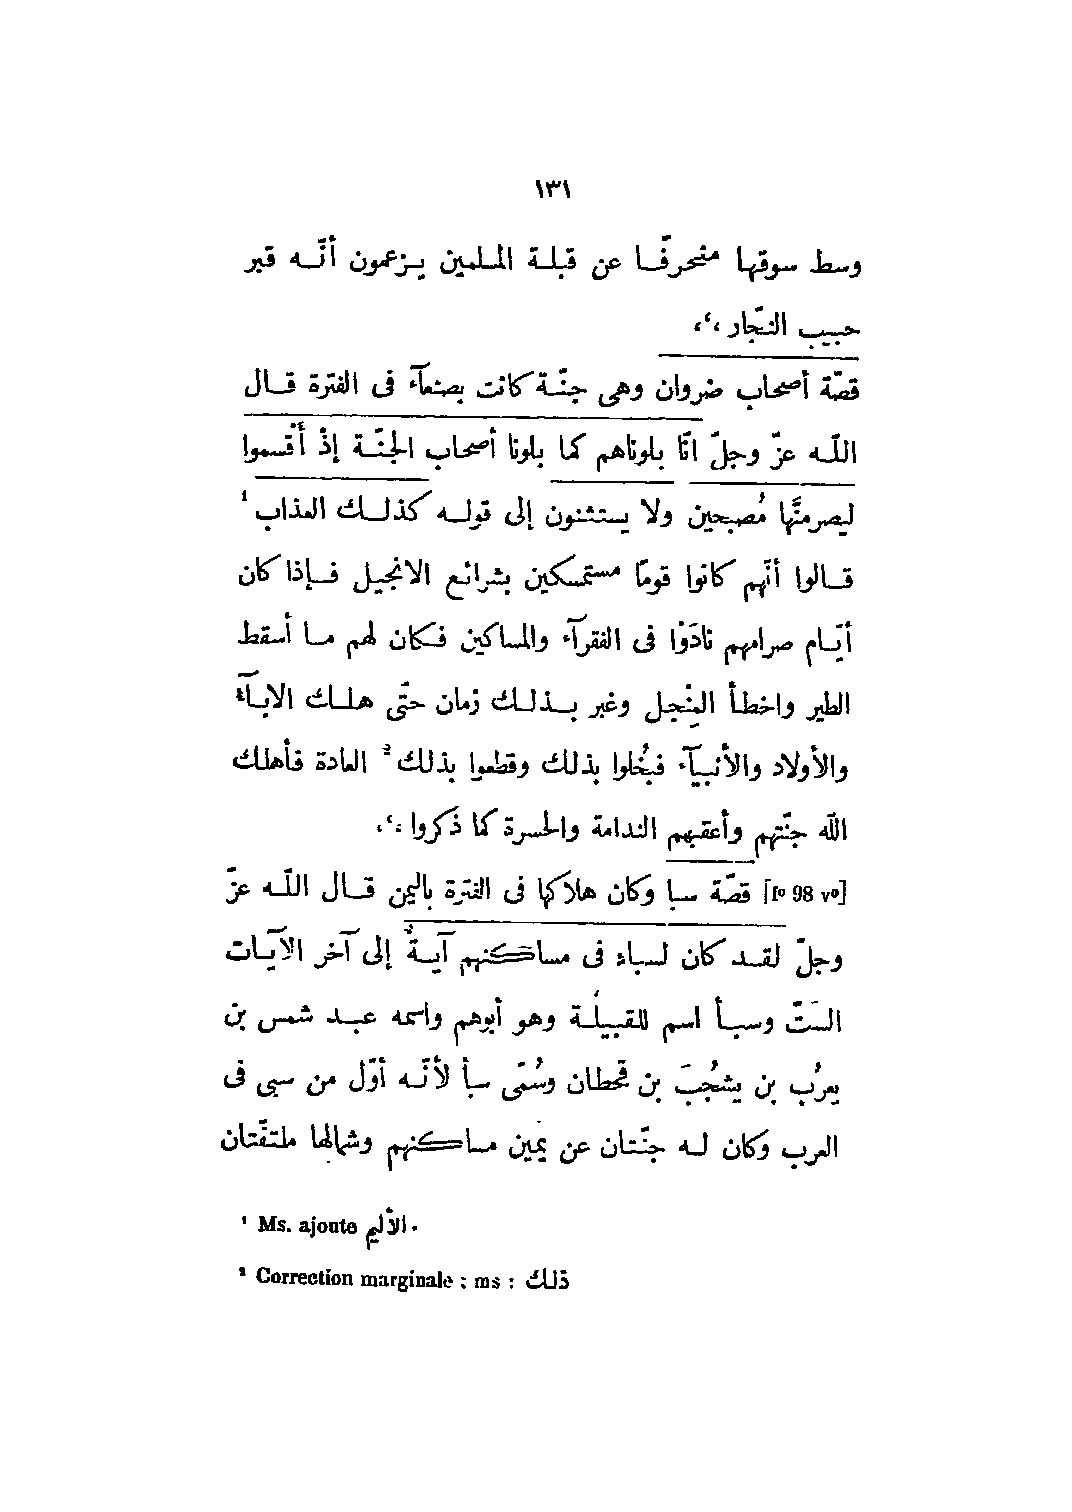 ١٣١
وسط سوقها منحرفًا عن قبلة المسلمين يزعمون أنّه قبر
حبيب النجّار ،؛،
قصّة أصحاب ضروان وهى جنّة كانت بصنعآء فى الفترة قال
اللّه عزّ وجلّ انّا بلوناهم كما بلونا أصحاب الجنّة إذْ أَقْسموا
ليصرمنَّها مُصبحين ولا يستثنون إلى قوله كذلك العذاب ¹
قالوا أنّهم كانوا قومًا مستمسكين بشرائع الانجيل فإذا كان
أيّام صرامهم نادَوْا فى الفقرآء والمساكين فكان لهم ما أسقط
الطير واخطأ المِنْجل وغبر بذلك زمان حتّى هلك الابآء
والأولاد والأنبيآء فبخُلوا بذلك وقطعوا بذلك ² العادة فأهلك
اللّه جنّتهم وأعقبهم الندامة والحسرة كما ذكروا ،؛،
[f° 98 v°] قصّة سبا وكان هلاكها فى الفترة باليمن قال اللّه عزّ
وجلّ لقد كان لسباء فى مساكنهم آيةٌ إلى آخر الآيات
الستّ وسبأ اسم للقبيلة وهو أبوهم واسمه عبد شمس بن
يعرُب بن يشجُبَ بن قحطان وسُمّى سبأ لأنّه أوّل من سبى فى
العرب وكان له جنّتان عن يمين مساكنهم وشمالها ملتفّتان
¹ Ms. ajoute الأليم.
² Correction marginale ; ms : ذلك